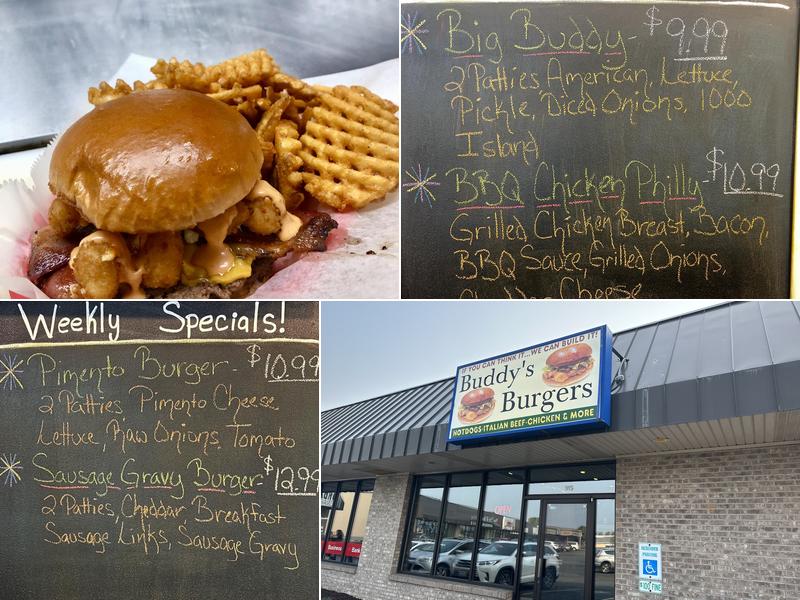 Big Buddy- $9.99
2 Patties American, Lettuce,
Pickle, Diced Onions, 1000
Island
BBQ Chicken Philly- $10.99
Grilled Chicken Breast, Bacon,
BBQ Sauce, Grilled Onions,
Cheese
Weekly Specials!
Pimento Burger- $10.99
2 Patties, Pimento Cheese
Lettuce, Raw Onions, Tomato
Sausage Gravy Burger- $12.99
2 Patties, Cheddar Breakfast
Sausage Links, Sausage Gravy
IF YOU CAN THINK IT...WE CAN BUILD IT!
Buddy's
Burgers
HOTDOGS·ITALIAN BEEF·CHICKEN & MORE
OPEN
915
Business Bank
RESERVED
PARKING
FINE